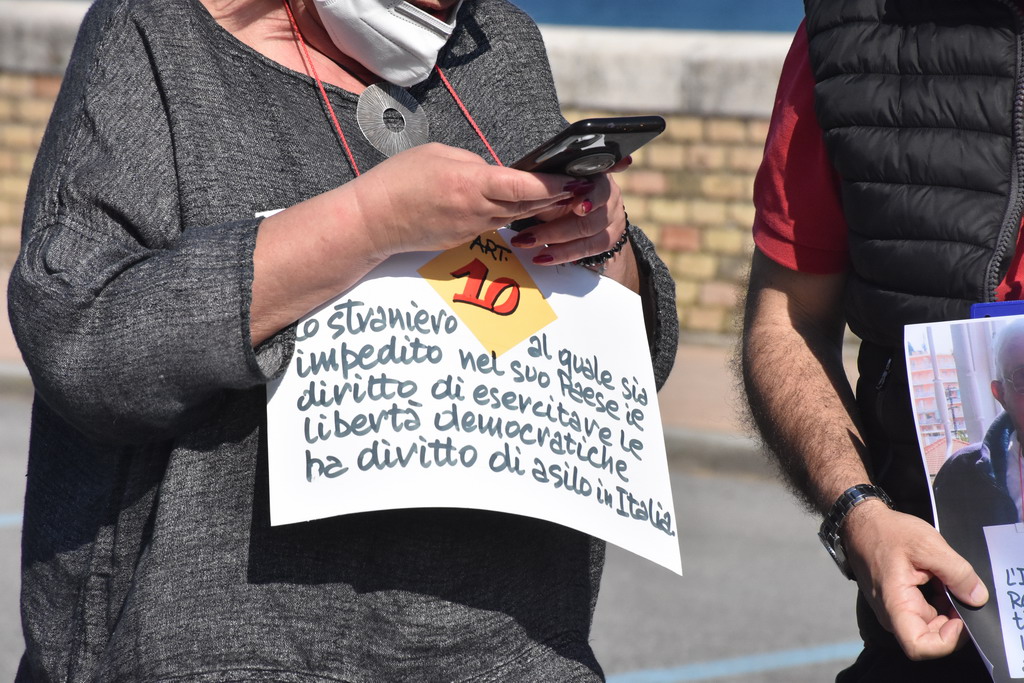 ART.
10
Lo straniero al quale sia
impedito nel suo Paese le
diritto di esercitare le
libertà democratiche
ha diritto di asilo in Italia.